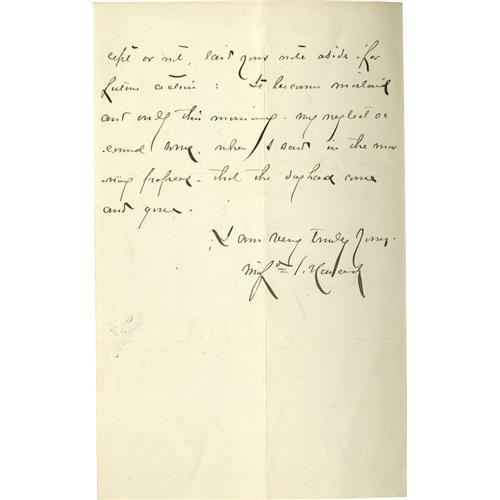 cept or not, laid your note aside for
future action : It became mislaid
and only this morning my neglect oc
curred to me, when I saw in the mor
ning papers that the day had come
and gone.
I am very truly yours.
Winf^d S. Hancock